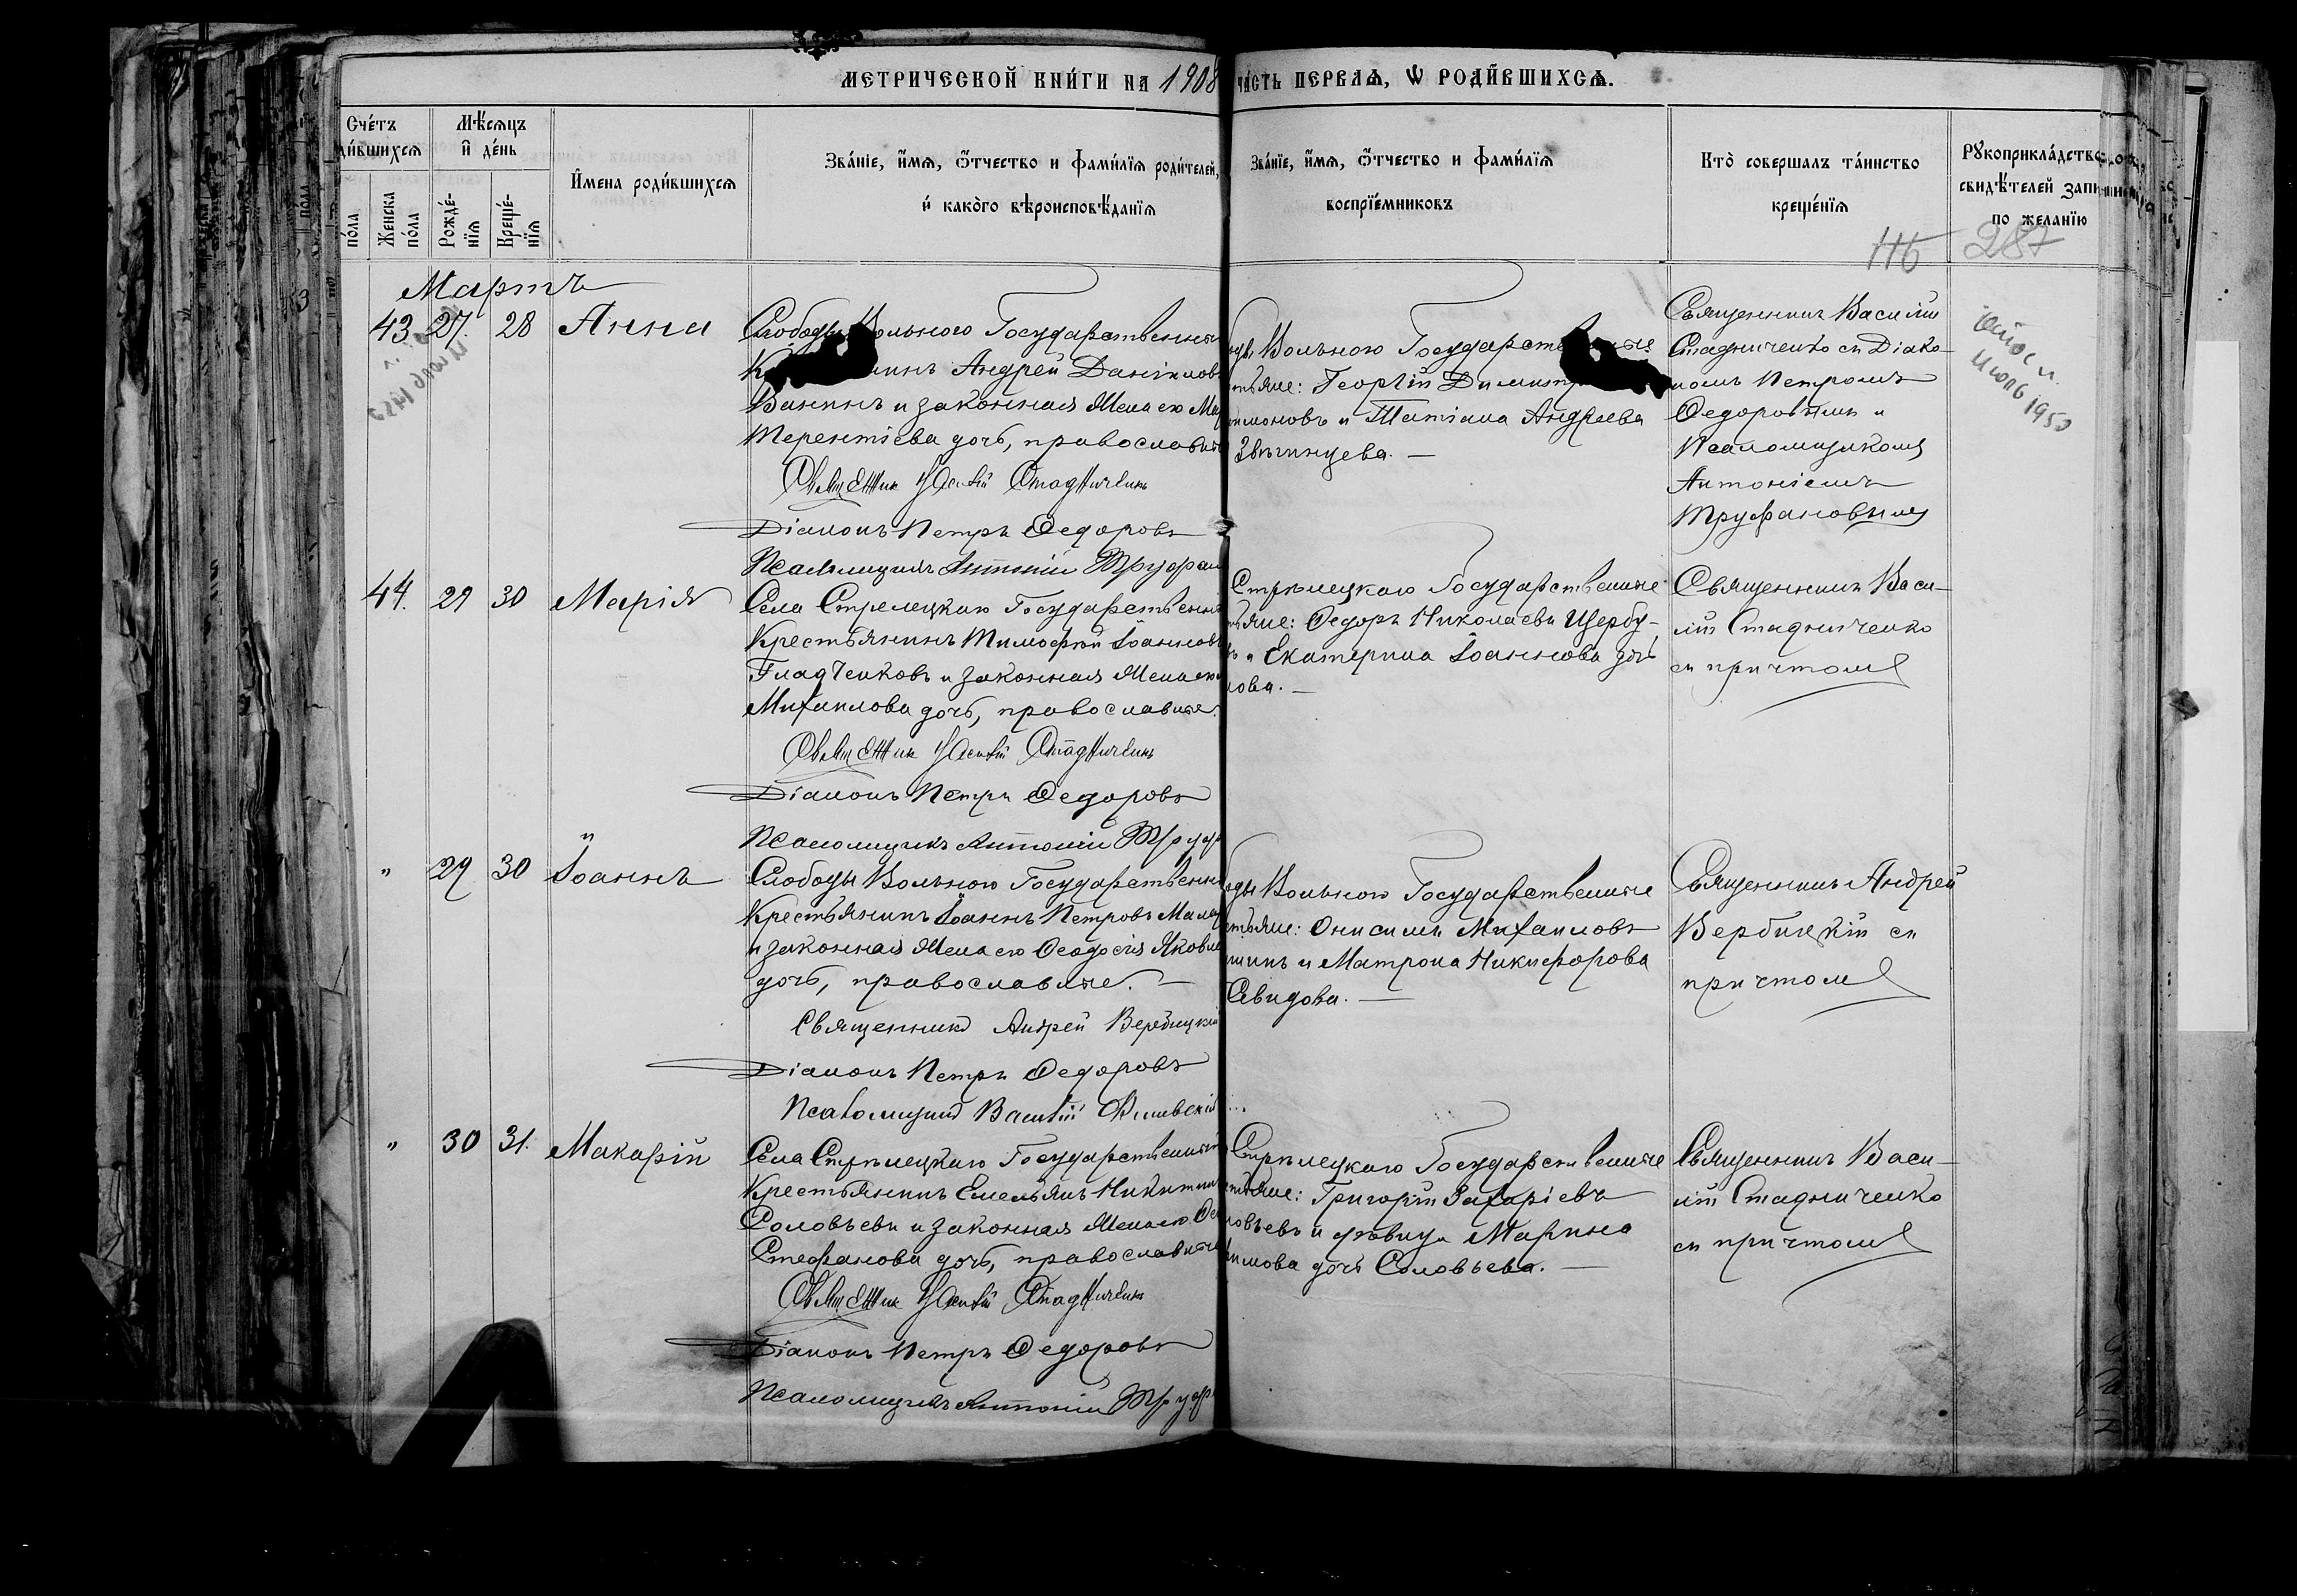 МЕТРИЧЕСКОЙ КНИ́ГИ НА 1908
ЧАСТЬ ПЕРВАѦ, Ѡ РОДИ́ВШИХСѦ.
Сче́тъ
ди́вшихсѧ
Мѣ́сѧцъ
и҆ де́нь
И҆мена роди́вшихсѧ
Зва́ніе, и҆́мѧ, ѻ҆́тчество и фами́лїѧ роди́телей,
и҆ како́гѡ вѣроисповѣ́данїѧ
Зва́нїе, и҆́мѧ, ѻ҆́тчество и фами́лїѧ
воспрїе́мниковъ
Кто̀ совершалъ та́инство
креще́нїѧ
Рꙋкоприкла́дство
свидѣ́телей запи
по жела́нїю
по́ла
Женска
по́ла
Рожде́-
нїѧ
Креще́-
нїѧ
116 287
Мартъ
43 27. 28 Анна
Слободы Вольного Государственны
Андрей Даніиловъ
Ванинъ и законная жена его
Терентіева дочь, православные
Священник Василій Стадниченко
Діаконъ Петръ Ѳедоровъ
Псаломщикъ Антоній Труфан
Вольного Государств
Георгій Димитр
и Татіана Андреева
Звягинцева. —
Священникъ Василій
Стадниченко съ Діако-
номъ Петромъ
Ѳедоровымъ и
Псаломщикомъ
Антоніемъ
Труфановымъ
Июль 1950
44. 29 30 Марія
Села Стрелецкаго Государственны
Крестьянинъ Тимофей Іоанновъ
Гладченковъ и законная жена его
Михаилова дочь, православные.
Священник Василій Стадниченко
Діаконъ Петръ Ѳедоровъ
Псаломщикъ Антоній Труф
Стрѣлецкаго Государственные
Ѳедоръ Николаевъ Щербу-
и Екатерина Іоаннова дочь
нова. —
Священникъ Васи-
лій Стадниченко
съ причтомъ
" 29 30 Іоаннъ
Слободы Вольного Государственны
Крестьянинъ Іоаннъ Петровъ
и законная жена его Ѳеодосія Яковле
дочь, православные. —
Священникъ Андрей Вербицкій
Діаконъ Петръ Ѳедоровъ
Псаломщикъ Василій
Вольного Государственные
Онисимъ Михаиловъ
и Матрона Никифорова
Севидова. —
Священникъ Андрей
Вербицкій съ
причтомъ
" 30 31. Макарій
Села Стрѣлецкаго Государственный
Крестьянинъ Емельянъ Никитин
Соловьевъ и законная жена его
Стефанова дочь, православные
Священник Василій Стадниченко
Діаконъ Петръ Ѳедоровъ
Псаломщикъ Антоній Труф
Стрѣлецкаго Государственные
Григорій Захаріевъ
ловьевъ и дѣвица Марина
дочь Соловьева. —
Священникъ Васи-
лій Стадниченко
съ причтомъ